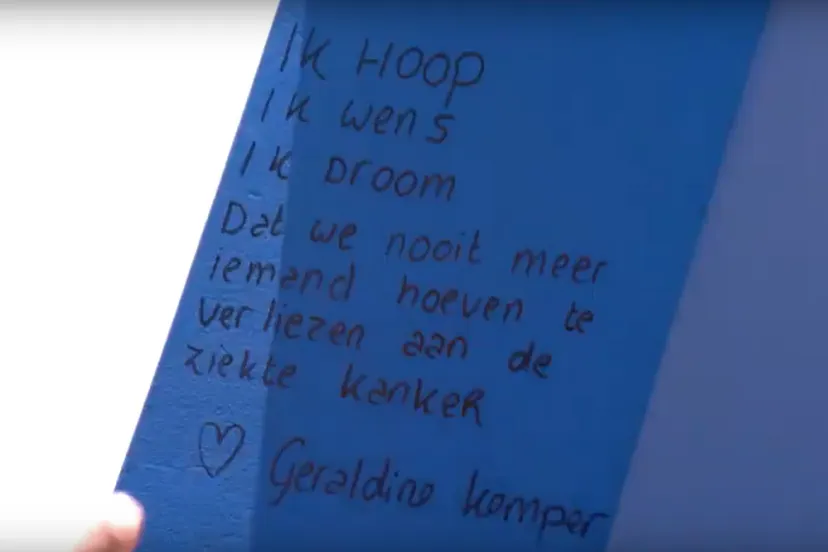 IK HOOP
IK wens
IK DrOOM
Dat we nooit meer
iemand hoeven te
verliezen aan de
ziekte kankeR
♡ Geraldine kemper